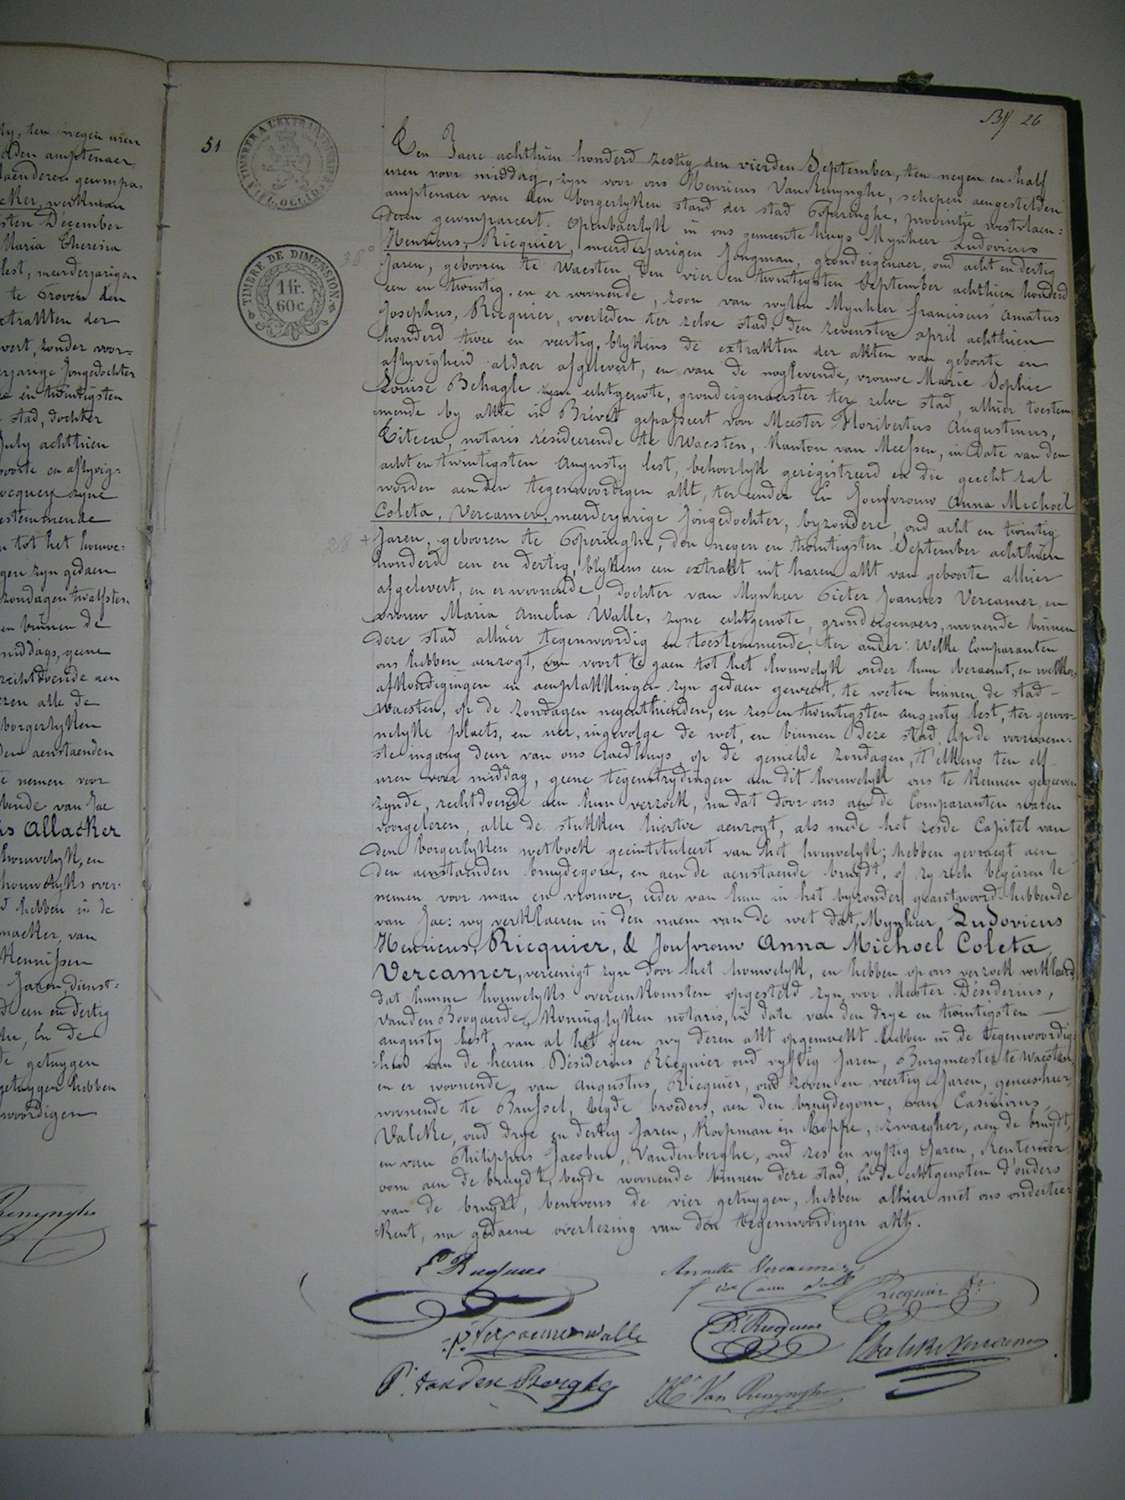 ty, ten negen uren
olden amptenaer
laenderen gecompa-
cker, werkman
sten December
Maria Theresia
lest, meerderjarigen
te Proven den
xtrakten der
vert, zonder voor-
rjarige Jongedochter
es en twintigsten
stad, dochter
July achttien
boorte en aflyvig-
ocquey zyne
estemmende
n tot het houwe-
gen zyn gedaen
zondagen twalfsten
en binnen de
middags, geene
rechtdoende aen
eren alle de
borgerlyken
den aenstaenden
te nemen voor
bende van Jae
us Allacker
houwelyk, en
houwelyks over-
hebben in de
macker, van
Kennissen
Jaren, dienst-
een en dertig
de getuygen
getuygen hebben
woordigen
Renynghe
51
By 26
TIMBRE DE DIMENSION
1 fr.
60 c.
Een Jaere achttien honderd zestig den vierden September, ten negen en half
uren voor middag, zyn voor ons Henricus Van Renynghe, schepen aengestelden
amptenaer van den borgerlyken stand der stad Poperinghe, provintje Westvlaen-
deren gecompareert. openbaerlyk in ons gemeente huys Mynheer Ludovicus
Henricus, Ricquier, meerderjarigen Jongman, grondeigenaer, oud acht en dertig
Jaren, gebooren te Waesten, den vier en twintigsten September achttien honderd
een en twintig. en er woonende, zoon van wylen Mynheer franciscus Amatus
Josephus, Ricquier, overleden ter zelve stad, den zevensten april achttien
honderd twee en veertig, blykens de extrakten der akten van geboorte en
aflyvigheid aldaer afgelevert, en van de noglevende, vrouwe Marie Sophie
Louise Behagle zyn echtgenote, grondeigenaerster ter zelve stad, alhier toestem-
mende by akte in Brévet gepasseert voor Meester Floribertus Augustinus,
notaris résideerende te Waesten, Kanton van Meessen, in date van den
acht en twintigsten Augusty lest, behoorlyk geregistreerd en die gehecht zal
worden aen den tegenwoordigen akt, ter eender En Joufvrouw Anna Michoel
Coleta, Vercamer, meerderjarige Jongedochter, byzondere, oud acht en twintig
Jaren, gebooren te Poperinghe, den negen en twintigsten September achttien
honderd een en dertig, blykens een extrakt uit haren akt van geboorte alhier
afgelevert, en er woonende, dochter van Mynheer Pieter Joannes Vercamer, en
vrouw Maria Amelia Walle, zyne echtgenote, grondeigenaers, woonende binnen
deze stad alhier tegenwoordig en toestemmende, ter ander: Welke Comparanten
ons hebben aenzogt, om voort te gaen tot het houwelyk onder hun beraemt, en welkers
afkondigingen en aenplakkingen zyn gedaen geweest, te weten binnen de stad
Waesten, op de zondagen negenthienden, en zes en twintigsten augusty lest, ter gewo-
nelyke plaets, en uer, ingevolge de wet, en binnen deze stad, op de voornaem-
ste ingang deur van ons Raedhuys, op de gemelde zondagen, t'elkens ten elf
uren voor middag, geene tegenstrydingen aen dit houwelyk ons te kennen gegeeven
zynde, rechtdoende aen hun verzoek, na dat door ons aen de Comparanten waren
voorgelezen, alle de stukken hiertoe aenzogt, als mede het zesde Capitel van
den borgerlyken wetboek geintituleert van het houwelyk; hebben gevraegt aen
den aenstaenden bruydegom, en aen de aenstaende bruydt, of zy zich begeiren te
nemen voor man en vrouwe, ieder van hun in het byzonder geantwoord hebbende
van Jae: wy verklaeren in den naem van de wet dat, Mynheer Ludovicus
Henricus, Ricquier, & Joufvrouw Anna Michoel Coleta,
Vercamer, vereenigt zyn door het houwelyk, en hebben op ons verzoek verklaerd
dat hunne houwelyks overeenkomsten opgesteld zyn voor Meester Désiderius,
Vanden Boogaerde, Koninglyken notaris, in date van den drye en twintigsten
augusty lest, van al het geen wy deren akt opgemaekt hebben in de tegenwoordig-
heid van de heeren Désiderius Ricquier oud vyftig Jaren, Burgmeester te Waesten
en er woonende, van Augustus, Ricquier, oud zeven en veertig Jaren, geneesheer,
woonende te Brussel, beyde broeders, aen den bruydegom, van Casimirus
Valcke, oud drye en dertig Jaren, Koopman in hoppe, zwaegher, aen de bruydt,
en van Philippus Jacobus, Vandenberghe, oud zes en vyftig Jaren, Rentenier
oom aen de bruydt, beyde woonende binnen deze stad, En de echtgenoten d'ouders
van de bruydt, benevens de vier getuygen, hebben alhier met ons onderteer-
kent, na gedaene overlezing van den tegenwoordigen akt.
Annette Vercamer
Ricquier
P. Vercamer Walle
D. Ricquier
Valcke Vercamer
Ph. Vanden Berghe
H. Van Renynghe